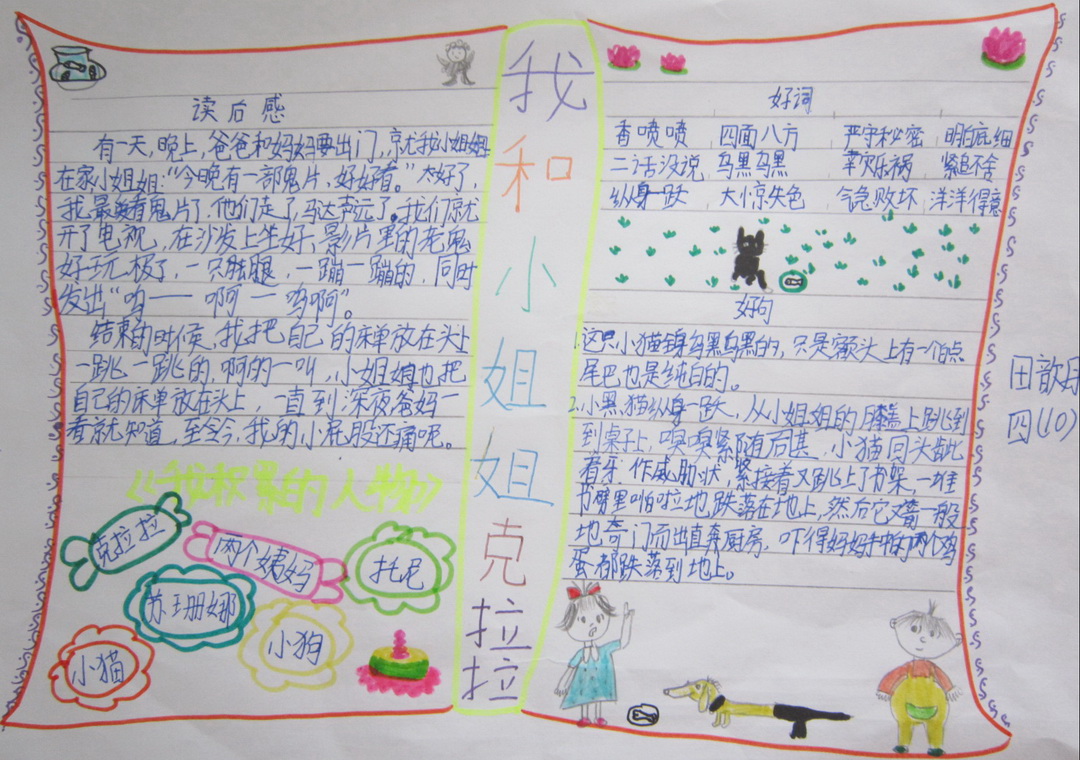 我和小姐姐克拉拉
读后感
有一天,晚上,爸爸和妈妈要出门,就我小姐姐
在家小姐姐:“今晚有一部鬼片,好好看。”太好了,
我最爱看鬼片了.他们走了,马达声远了。我们就
开了电视,在沙发上坐好,影片里的老鬼
好玩极了,一只胳腿,一蹦一蹦的,同时
发出“呜——啊—呜啊”。
结束的时候,我把自己的床单放在头上
一跳一跳的,啊的一叫,小姐姐也把
自己的床单放在头上,一直到深夜爸妈一
看就知道,至今,我的小屁股还痛呢。
《我积累的人物》
克拉拉
两个姨妈
托尼
苏珊娜
小狗
小猫
好词
香喷喷 四面八方 严守秘密 明白底细
二话没说 乌黑乌黑 幸灾乐祸 紧追不舍
纵身一跃 大小惊失色 气急败坏 洋洋得意
好句
1.这只小猫全身乌黑乌黑的,只是额头上有一个白点
尾巴也是纯白的。
2.小黑猫纵身一跃,从小姐姐的膝盖上跳到
到桌子上,嗅嗅紧随而甚,小猫回头龇
着牙作威胁状,紧接着又跳上了书架一堆
书劈里啪啦地跌落在地上,然后它又箭一般
地夺门而出直奔厨房,吓得妈妈手拍的两个鸡
蛋都跌落到地上。
四(10)